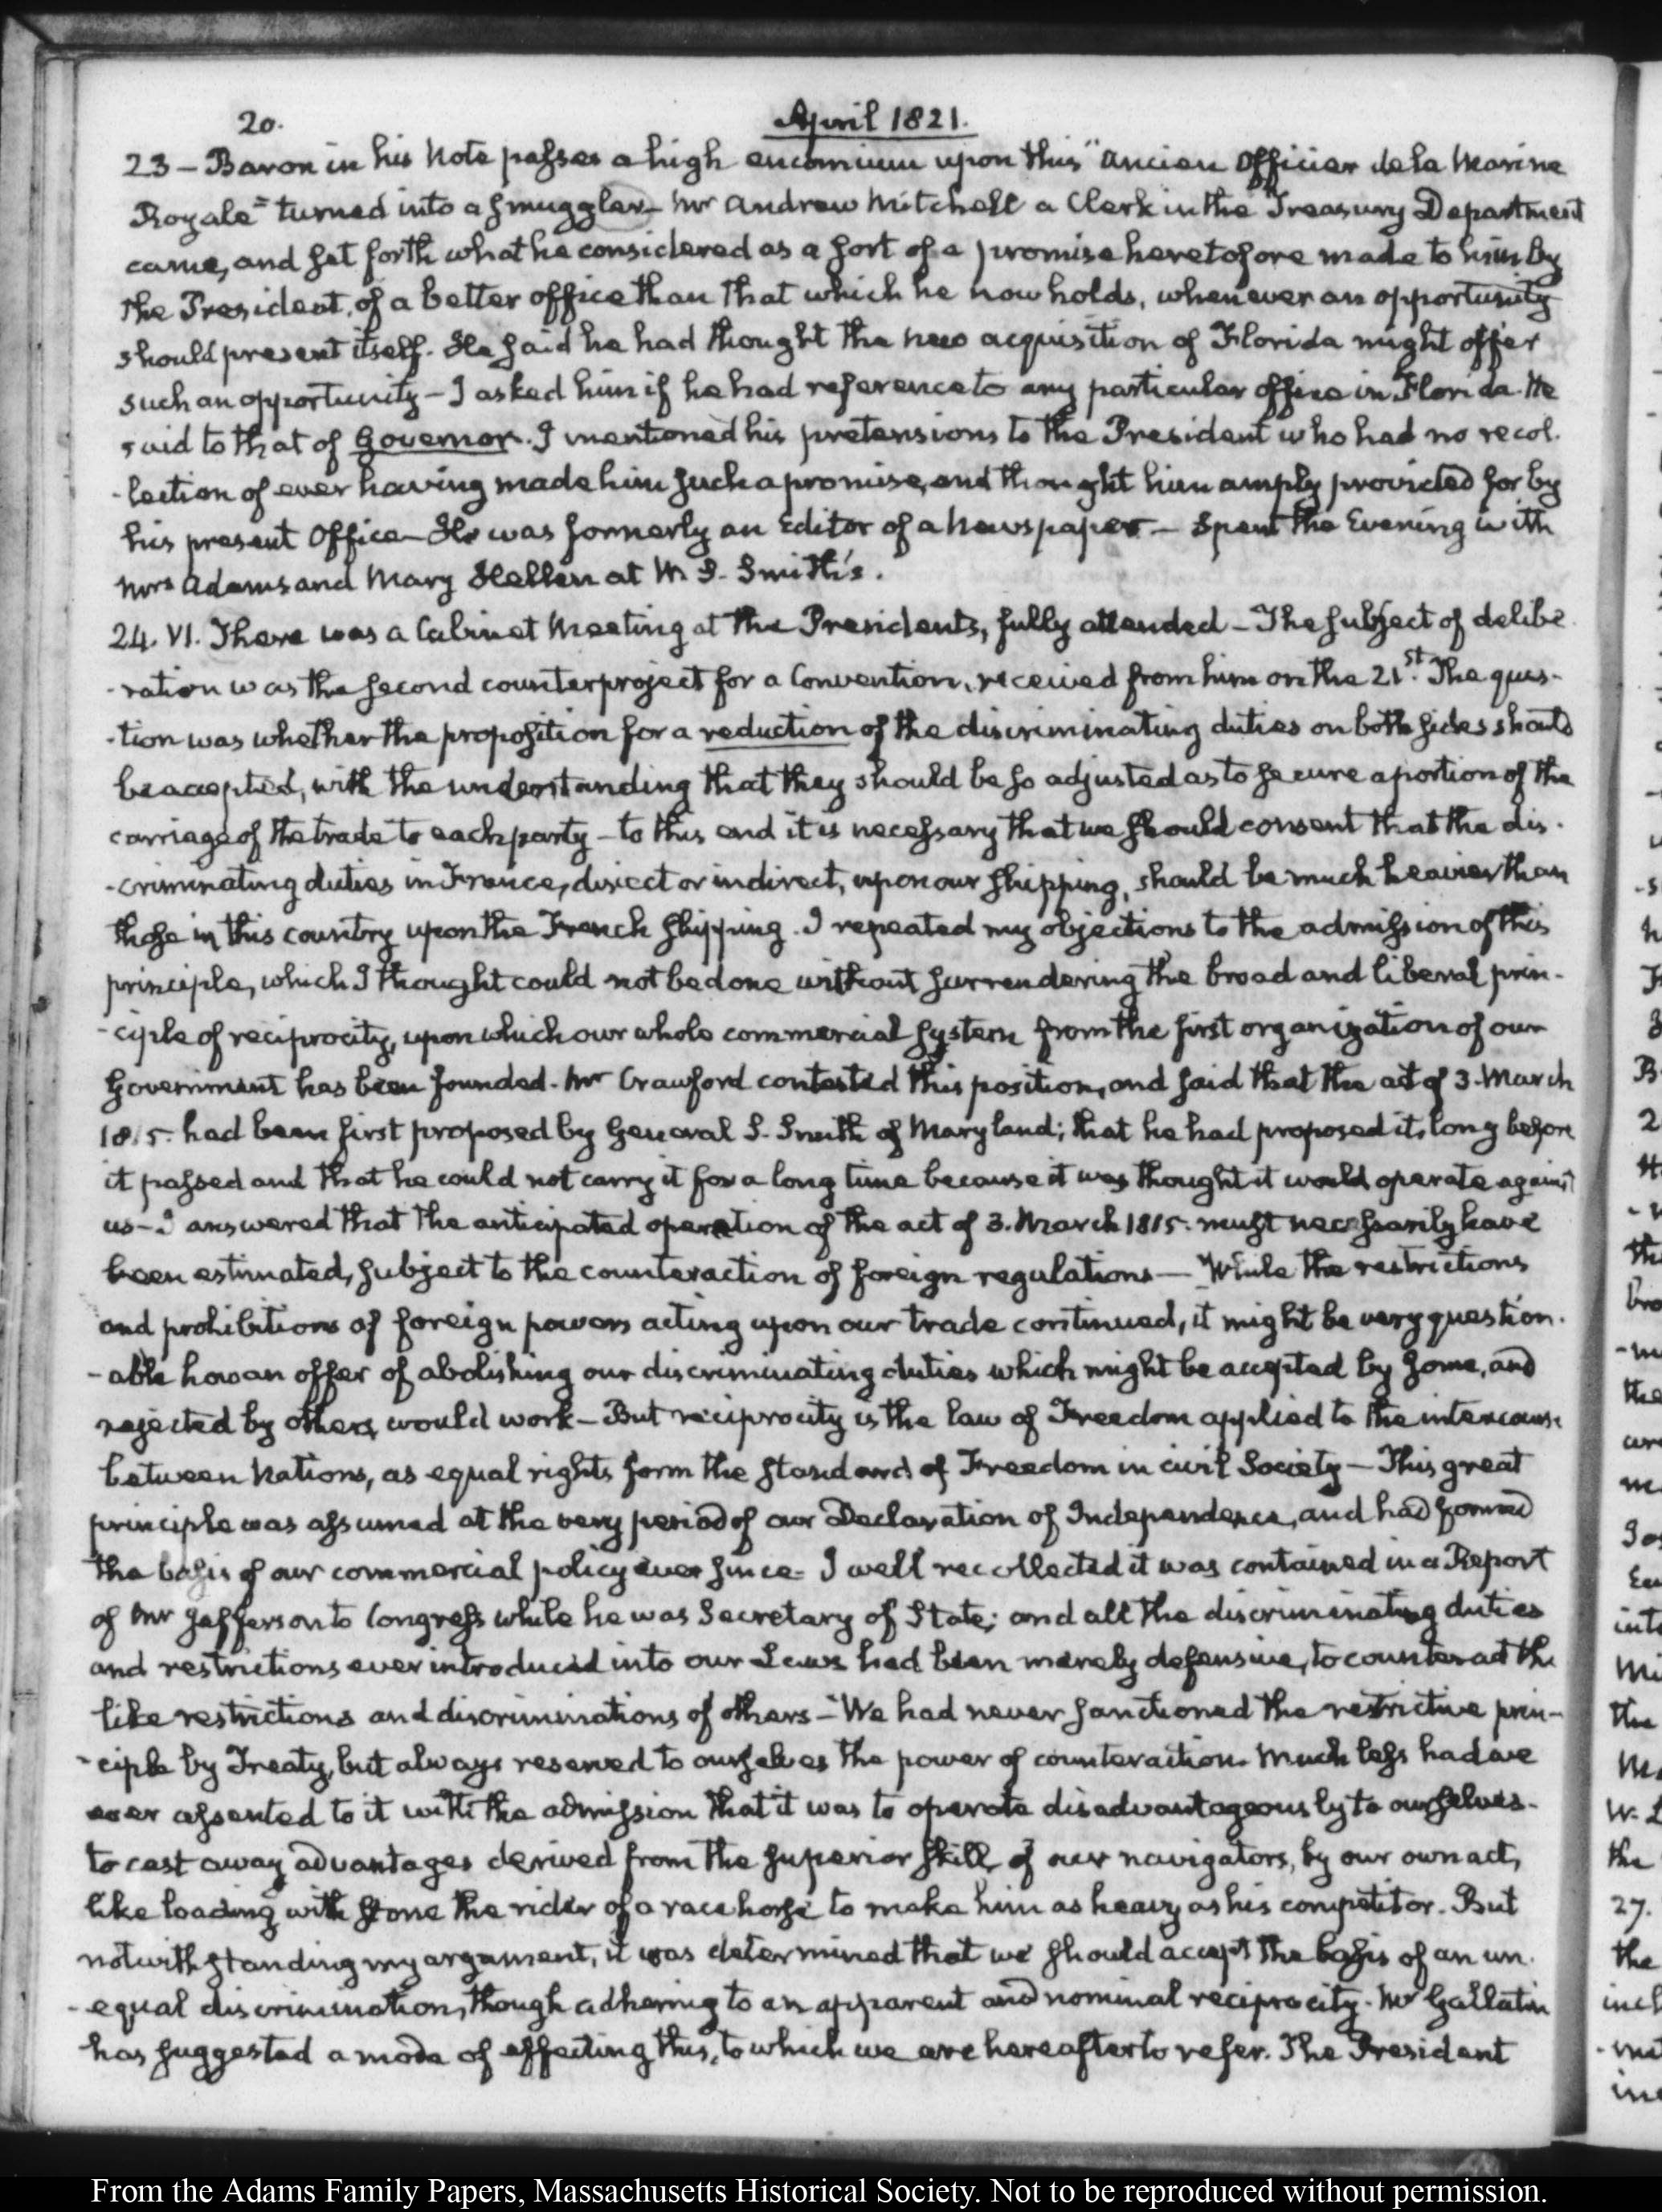 20.
April 1821.
23 — Baron in his Note passes a high encomium upon this "ancien Officier de la Marine
Royale" turned into a smuggler — Mr Andrew Mitchell a Clerk in the Treasury Department
came, and set forth what he considered as a sort of a promise heretofore made to him by
the President, of a better office than that which he now holds, whenever an opportunity
should present itself. He said he had thought the new acquisition of Florida might offer
such an opportunity — I asked him if he had reference to any particular office in Florida. He
said to that of Governor. I mentioned his pretensions to the President who had no recol-
-lection of ever having made him such a promise, and thought him amply provided for by
his present Office — He was formerly an Editor of a Newspaper — Spent the Evening with
Mrs Adams and Mary Hellen at W. S. Smith's.
24. VI. There was a Cabinet Meeting at the Presidents, fully attended — The subject of delibe-
-ration was the second counterproject for a Convention, received from him on the 21st. The ques-
-tion was whether the proposition for a reduction of the discriminating duties on both sides should
be accepted, with the understanding that they should be so adjusted as to secure a portion of the
carriage of the trade to each party — to this end it is necessary that we should consent that the dis-
-criminating duties in France, direct or indirect, upon our shipping, should be much heavier than
those in this country upon the French shipping. I repeated my objections to the admission of this
principle, which I thought could not be done without surrendering the broad and liberal prin-
-ciple of reciprocity, upon which our whole commercial system from the first organization of our
Government has been founded. Mr Crawford contested this position, and said that the act of 3. March
1815. had been first proposed by General S. Smith of Maryland; that he had proposed it, long before
it passed and that he could not carry it for a long time because it was thought it would operate against
us — I answered that the anticipated operation of the act of 3. March 1815. must necessarily have
been estimated, subject to the counteraction of foreign regulations — While the restrictions
and prohibitions of foreign powers acting upon our trade continued, it might be very question-
-able how an offer of abolishing our discriminating duties which might be accepted by some, and
rejected by others, would work — But reciprocity is the law of Freedom applied to the intercourse
between Nations, as equal rights form the standard of Freedom in civil Society — This great
principle was assumed at the very period of our Declaration of Independence, and had formed
the basis of our commercial policy ever since — I well recollected it was contained in a Report
of Mr Jefferson to Congress while he was Secretary of State; and all the discriminating duties
and restrictions ever introduced into our Laws had been merely defensive, to counteract the
like restrictions and discriminations of others — We had never sanctioned the restrictive prin-
-ciple by Treaty, but always reserved to ourselves the power of counteraction. Much less had we
ever assented to it with the admission that it was to operate disadvantageously to ourselves —
to cast away advantages derived from the superior skill of our navigators, by our own act,
like loading with stone the rider of a race horse to make him as heavy as his competitor. But
notwithstanding my argument, it was determined that we should accept the basis of an un-
-equal discrimination, though adhering to an apparent and nominal reciprocity. Mr Gallatin
has suggested a mode of effecting this, to which we are hereafter to refer. The President
From the Adams Family Papers, Massachusetts Historical Society. Not to be reproduced without permission.